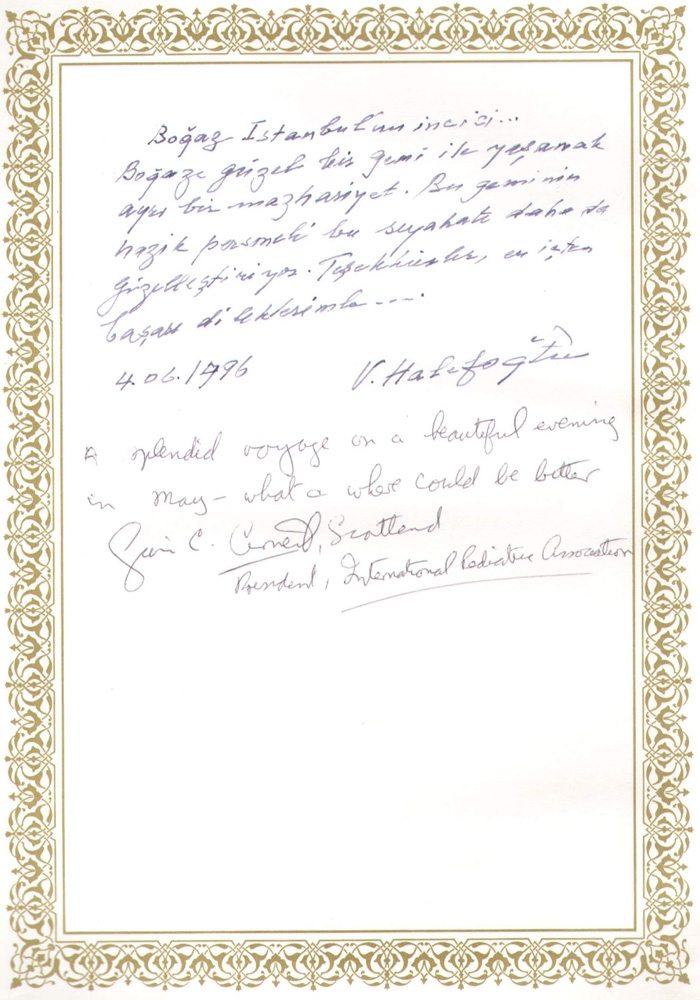 Boğaz İstanbul'un incisi...
Boğazı güzel bir gemi ile yaşamak
ayrı bir mazhariyet. Bu geminin
nazik personeli bu seyahati daha da
güzelleştiriyor. Teşekkürler, en içten
başarı dileklerimle ....
4.06.1996 V. Halefoğlu
A splendid voyage on a beautiful evening
in May – what a where could be better
C. Scotland
President, International Pediatric Association